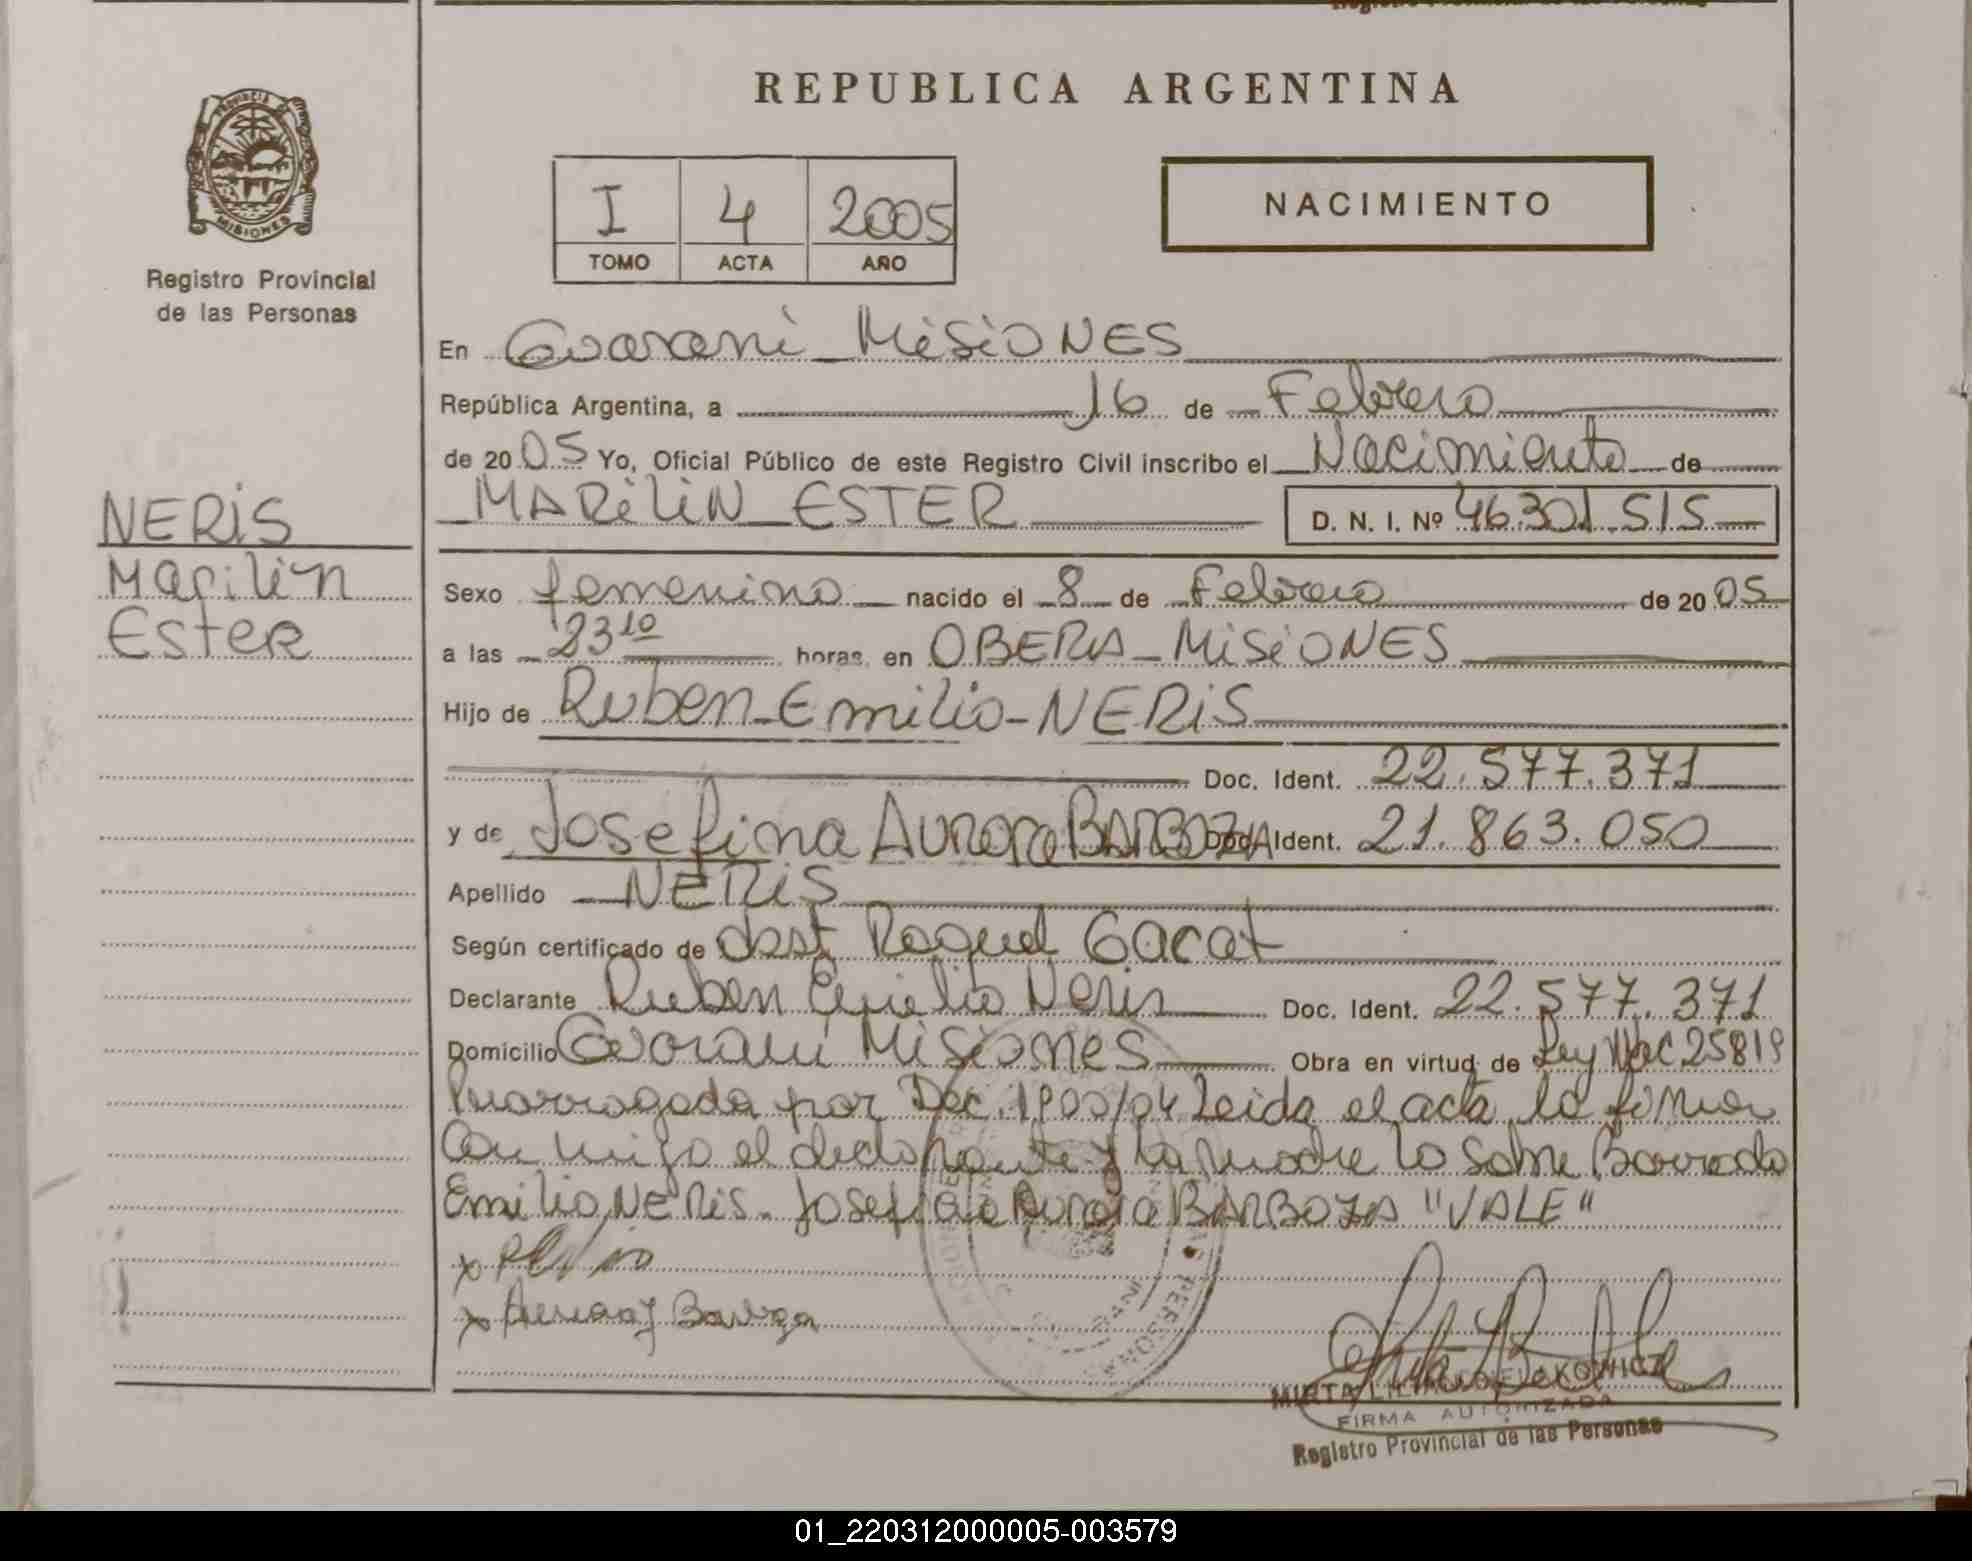 REPUBLICA ARGENTINA
PROVINCIA DE
MISIONES
Registro Provincial
de las Personas
I 4 2005
TOMO ACTA AÑO
NACIMIENTO
En Guarani Misiones
República Argentina, a 16 de Febrero
de 2005 Yo, Oficial Público de este Registro Civil inscribo el Nacimiento de
MARILIN ESTER D. N. I. Nº 46.301.515
NERIS
Marilin
Ester
Sexo femenino nacido el 8 de Febrero de 2005
a las 23 10 horas, en OBERA - MISIONES
Hijo de Ruben Emilio - NERIS
Doc. Ident. 22.577.371
y de Josefina Aurora BARBOZA Doc. Ident. 21.863.050
Apellido NERIS
Según certificado de Obst Raquel Gacat
Declarante Ruben Emilio Neris Doc. Ident. 22.577.371
Domicilio Guarani Misiones Obra en virtud de Ley Nac 25819
Prorrogada por Dec. 1900/04 Leida el acta la firman
Con migo el declarante y la madre lo sobre Borrado
Emilio NERIS. Josefina Aurora BARBOZA "VALE"
x
x
PERSONAS
MIRTA
FIRMA AUTORIZADA
Registro Provincial de las Personas
01_220312000005-003579